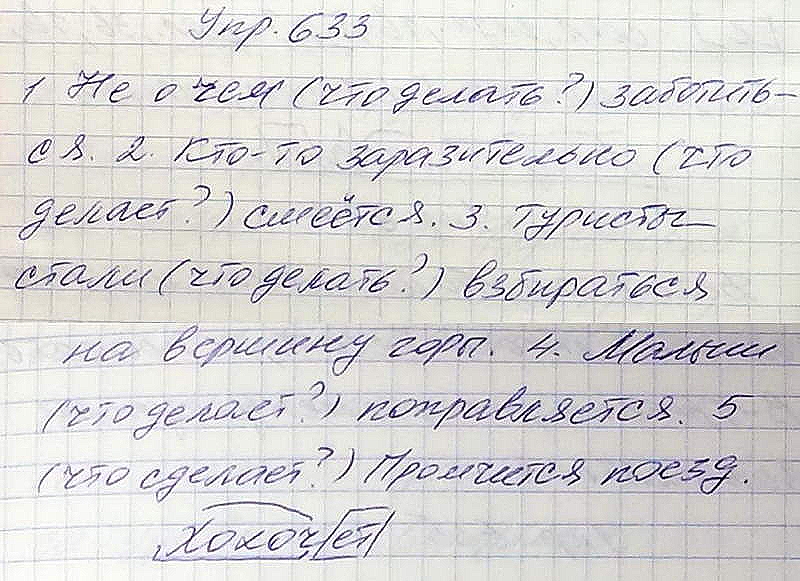 Упр. 633
1 Не о чем (что делать?) заботить-
ся. 2. Кто-то заразительно (что
делает?) смеётся. 3. Туристы
стали (что делать?) взбираться
на вершину горы. 4. Малыш
(что делает?) поправляется. 5
(что сделает?) Промчится поезд.
Хохочет